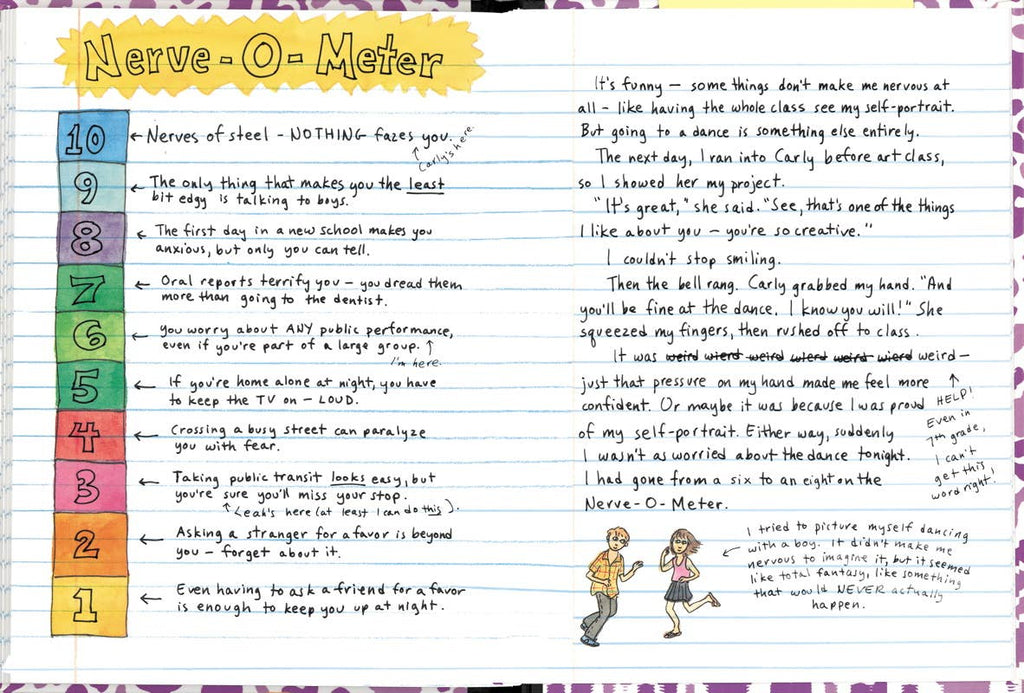 Nerve-O-Meter
10 Nerves of steel - NOTHING fazes you.
Carly's here.
9 The only thing that makes you the least
bit edgy is talking to boys.
8 The first day in a new school makes you
anxious, but only you can tell.
7 Oral reports terrify you - you dread them
more than going to the dentist.
6 You worry about ANY public performance,
even if you're part of a large group.
I'm here.
5 If you're home alone at night, you have
to keep the TV on - LOUD.
4 Crossing a busy street can paralyze
you with fear.
3 Taking public transit looks easy, but
you're sure you'll miss your stop.
Leah's here (at least I can do this).
2 Asking a stranger for a favor is beyond
you - forget about it.
1 Even having to ask a friend for a favor
is enough to keep you up at night.
It's funny - some things don't make me nervous at
all - like having the whole class see my self-portrait.
But going to a dance is something else entirely.
The next day, I ran into Carly before art class,
so I showed her my project.
"It's great," she said. "See, that's one of the things
I like about you - you're so creative."
I couldn't stop smiling.
Then the bell rang. Carly grabbed my hand. "And
you'll be fine at the dance. I know you will!" She
squeezed my fingers, then rushed off to class.
It was weird wierd weird wierd weird wierd weird -
just that pressure on my hand made me feel more
confident. Or maybe it was because I was proud
of my self-portrait. Either way, suddenly
I wasn't as worried about the dance tonight.
I had gone from a six to an eight on the
Nerve-O-Meter.
HELP!
Even in
7th grade,
I can't
get this
word right!
I tried to picture myself dancing
with a boy. It didn't make me
nervous to imagine it, but it seemed
like total fantasy, like something
that would NEVER actually
happen.